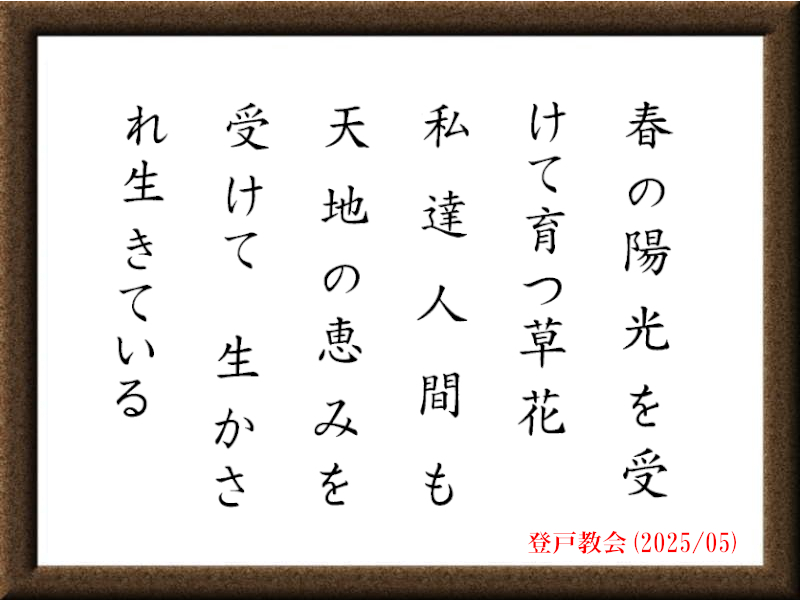 春の陽光を受
けて育つ草花
私達人間も
天地の恵みを
受けて　生かさ
れ生きている
登戸教会(2025/05)